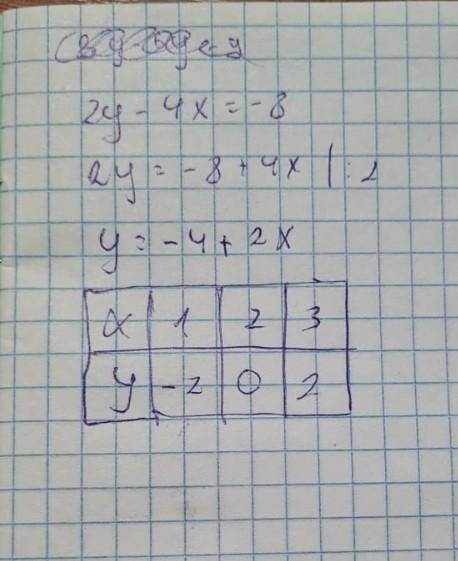 2y - 4x = -8
2y = -8 + 4x | : 2
y = -4 + 2x
x 1 2 3
y -2 0 2